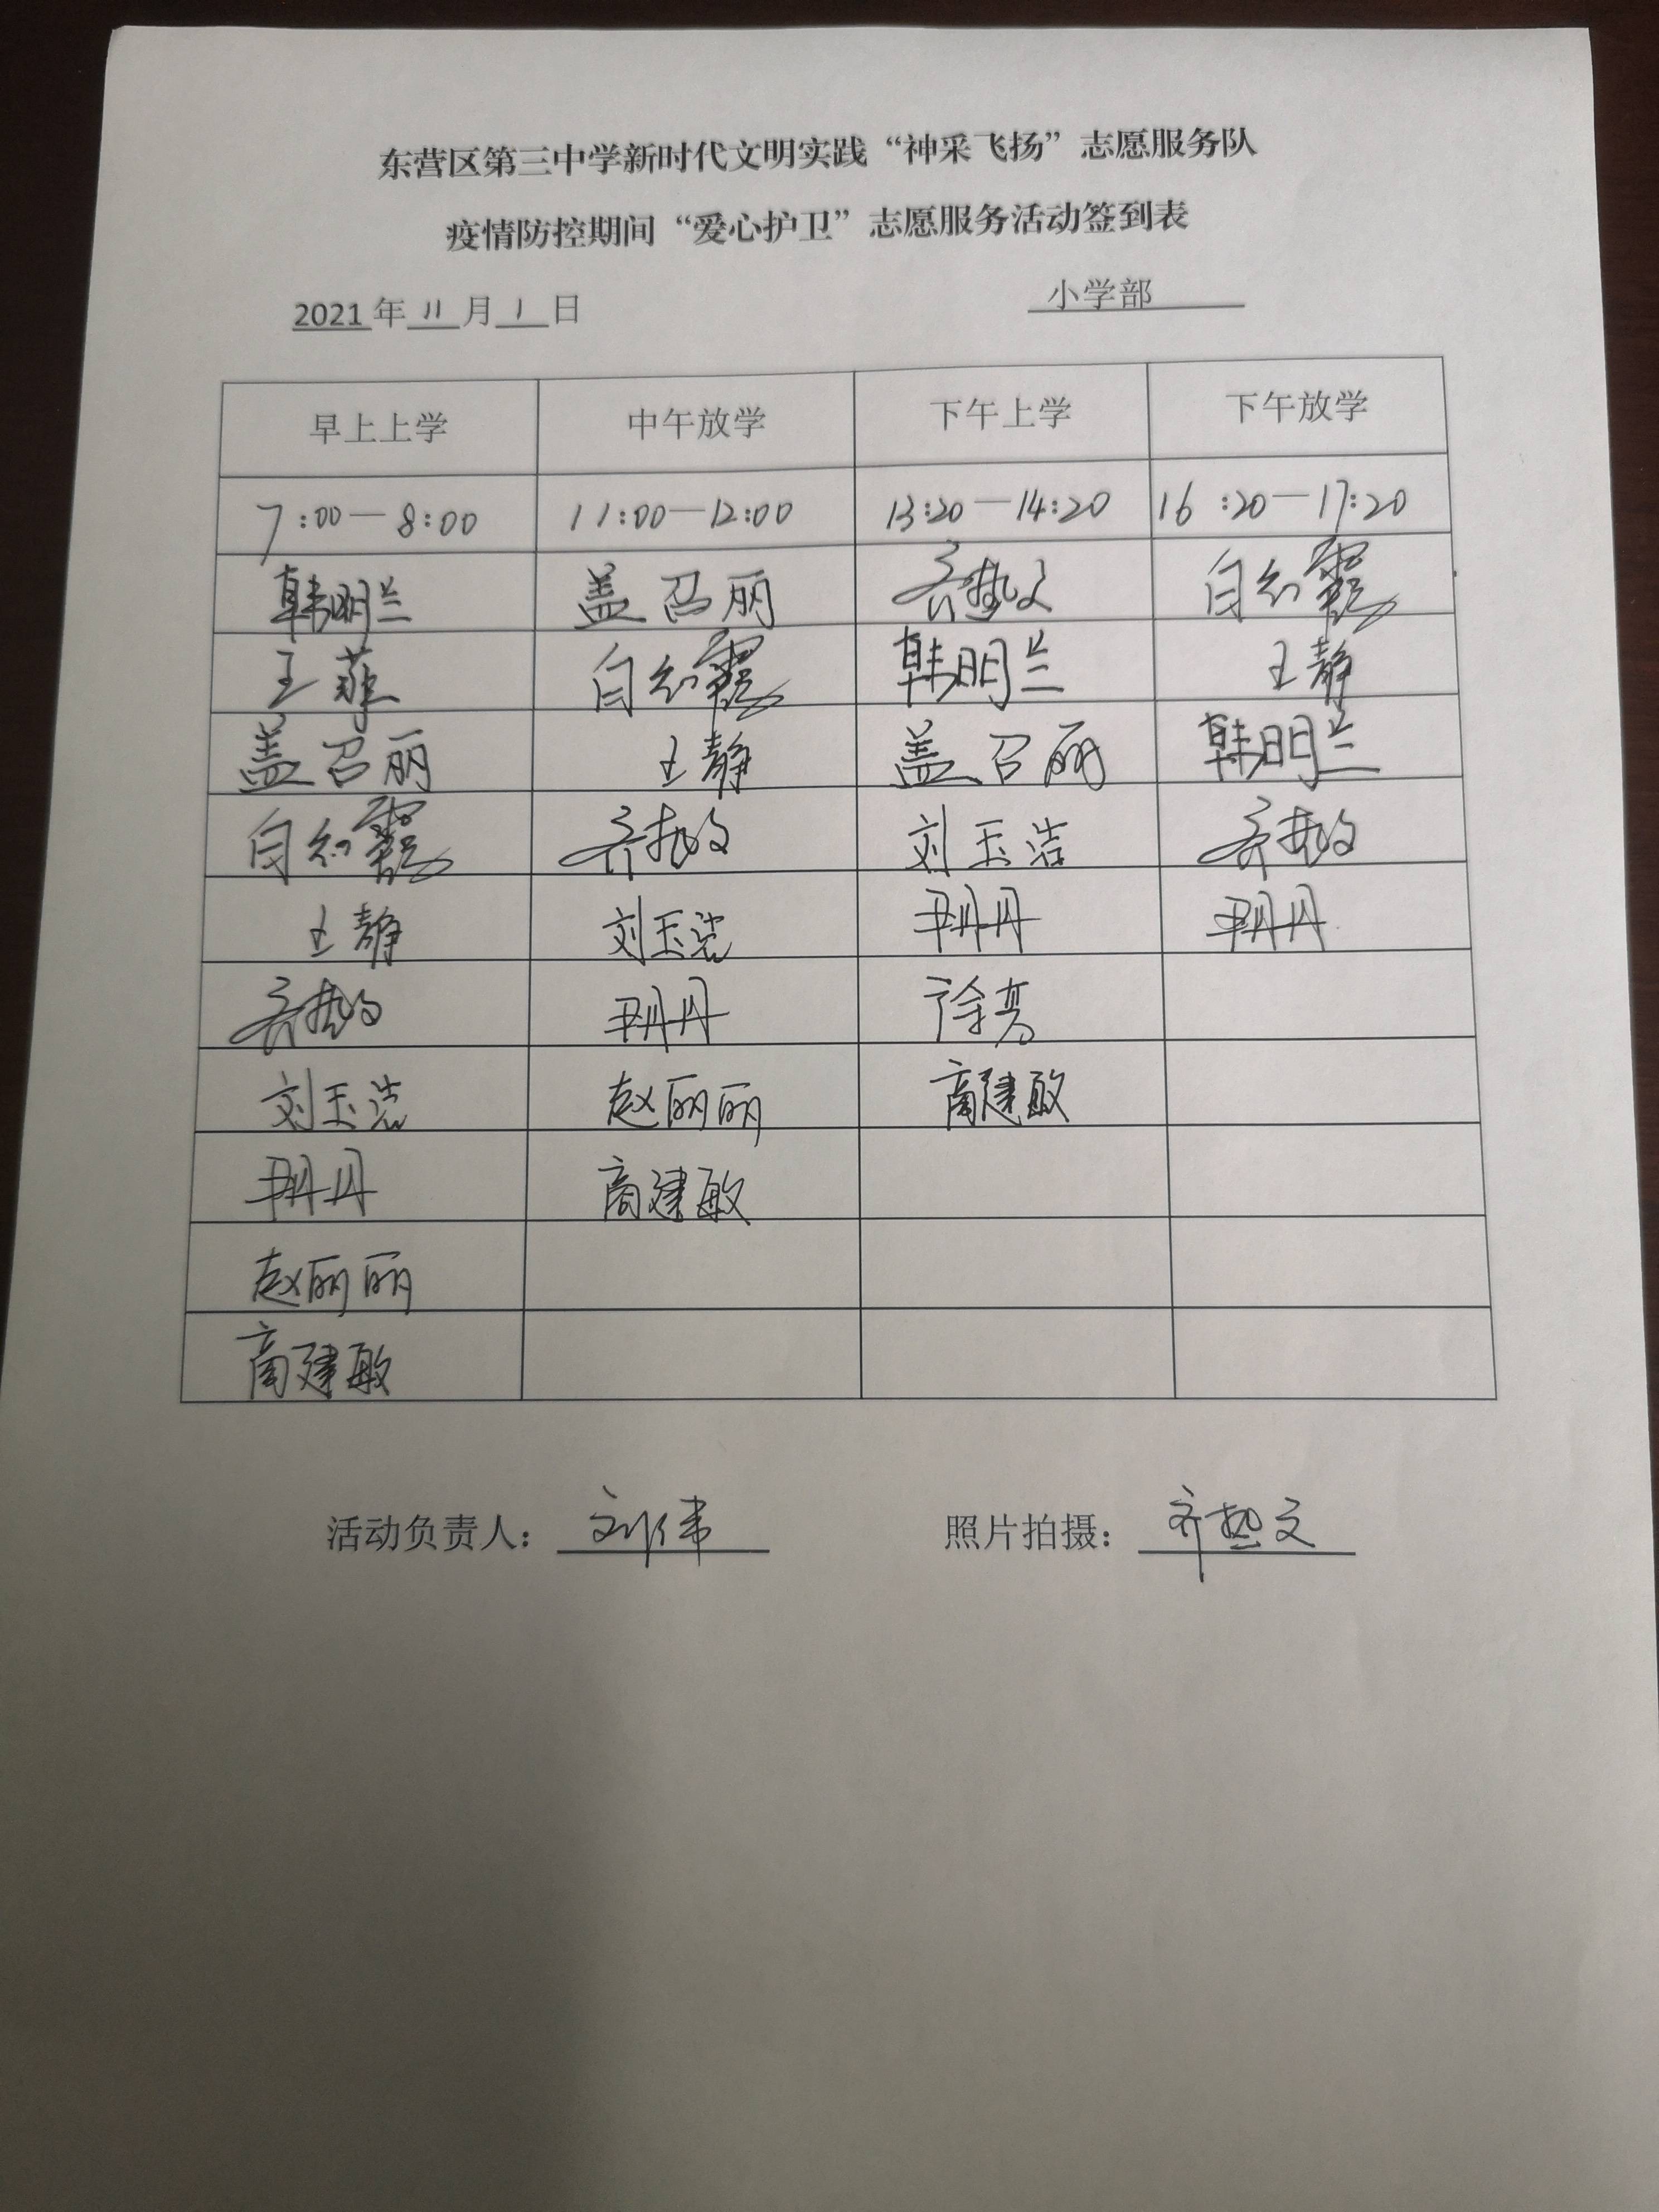 东营区第三中学新时代文明实践“神采飞扬”志愿服务队
疫情防控期间“爱心护卫”志愿服务活动签到表
2021年11月1日 小学部
早上上学 中午放学 下午上学 下午放学
7:00—8:00 11:00—12:00 13:20—14:20 16:20—17:20
韩明兰 盖召丽 韩明兰
王菲 王静
盖召丽 王静 盖召丽 韩明兰
刘玉洁
王静 刘玉洁 尹丹丹 尹丹丹
尹丹丹 徐亮
刘玉洁 赵丽丽 商建敏
尹丹丹 商建敏
赵丽丽
商建敏
活动负责人：刘伟 照片拍摄：